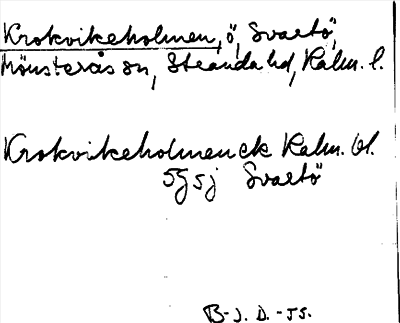 Krokvikeholmen, ö, Svartö,
Mönsterås sn, Stranda hd, Kalm. l.
Krokvikeholmen ek Kalm. bl.
5G5j Svartö
B-J. D. -55.